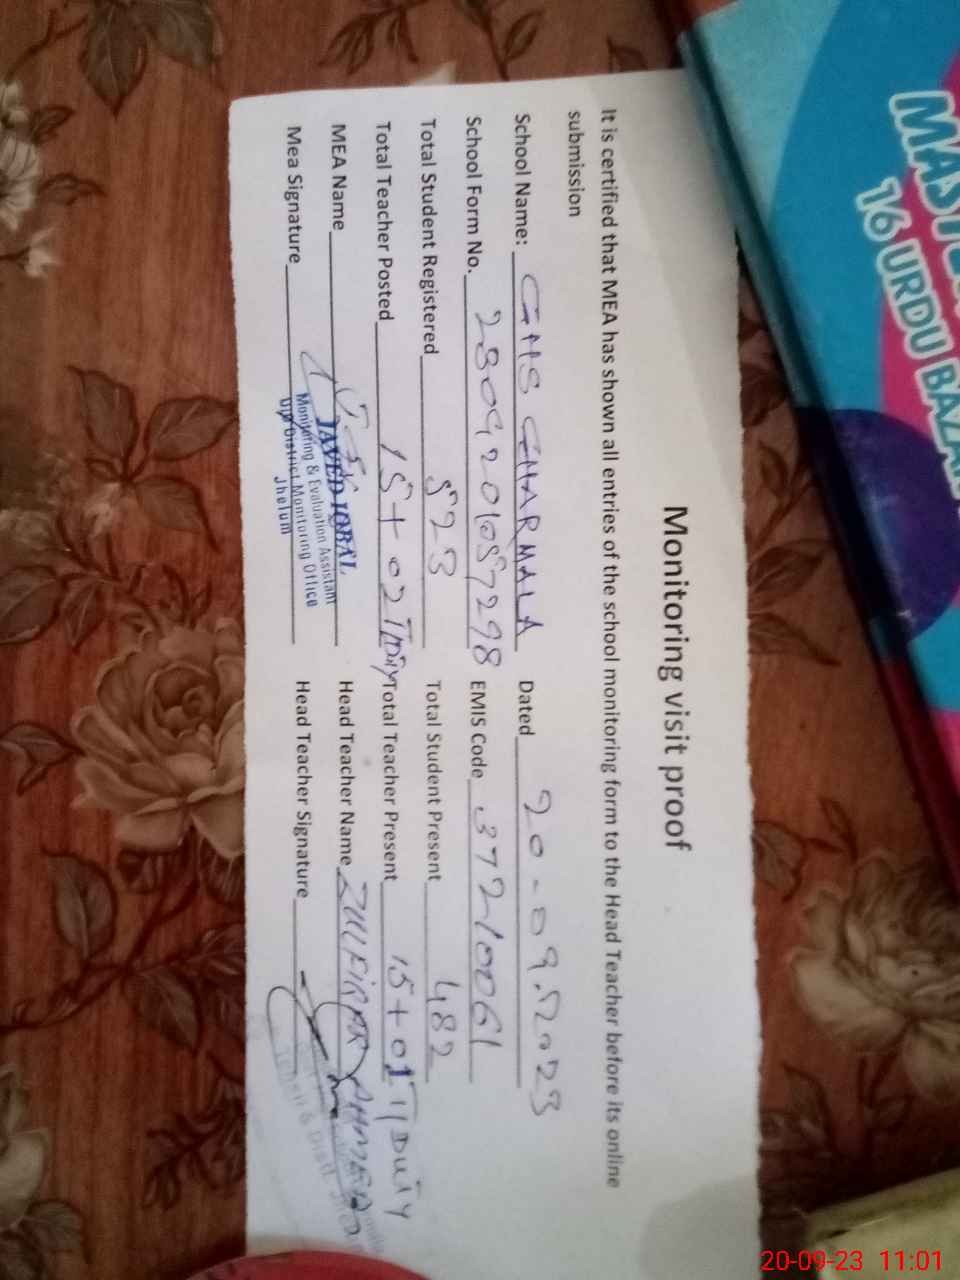 Monitoring visit proof
It is certified that MEA has shown all entries of the school monitoring form to the Head Teacher before its online
submission
School Name: GHS GHARMALA Dated 20-09.2023
School Form No. 2809201087298 EMIS Code 37210061
Total Student Registered 523 Total Student Present 482
Total Teacher Posted 15+02 T/Duty Total Teacher Present 15+01 T/Duty
MEA Name Head Teacher Name ZULFIQAR AHMED
JAVED IQBAL
Monitoring & Evaluation Assistant
Mea Signature Head Teacher Signature
O/o District Monitoring Office
Jhelum
16 URDU BAZA
20-09-23 11:01